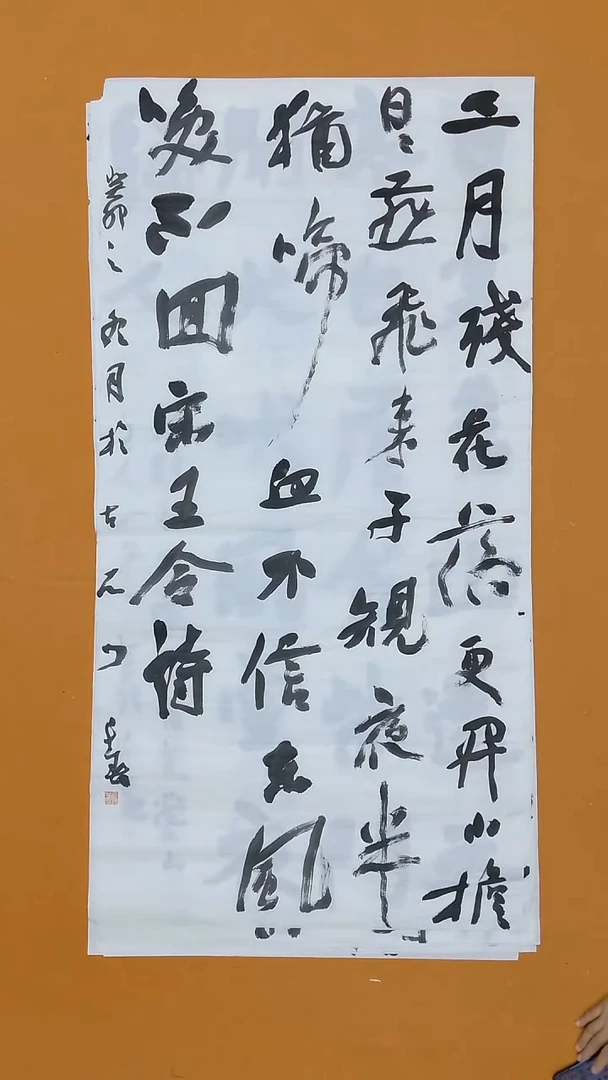 三月殘花落更開小檐
日日燕飛来子規夜半
猶啼血不信东風
喚不回宋王令詩
癸卯之冬月於古